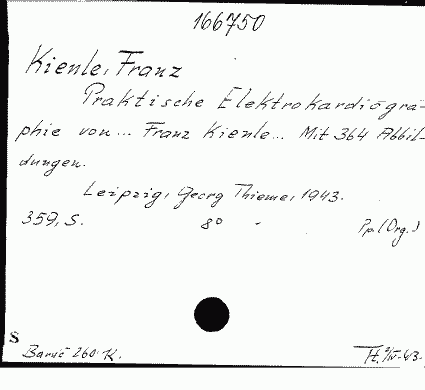 166750
Kienle, Franz
Praktische Elektrokardiogra-
phie von... Franz Kienle... Mit 364 Abbil-
dungen.
Leipzig, Georg Thieme, 1943.
359, S. 8° - Pp. (Org.)
S
Barvič 260 K. H. 2/IV-43.